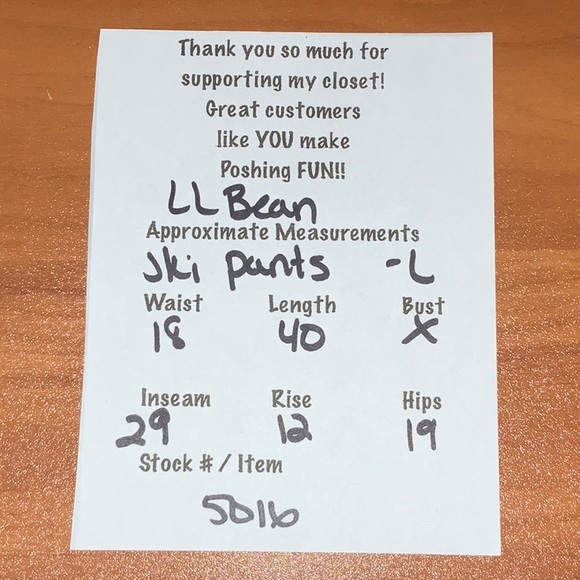 Thank you so much for
supporting my closet!
Great customers
like YOU make
Poshing FUN!!
LL Bean
Approximate Measurements
Ski pants -L
Waist Length Bust
18 40 X
Inseam Rise Hips
29 12 19
Stock # / Item
5016